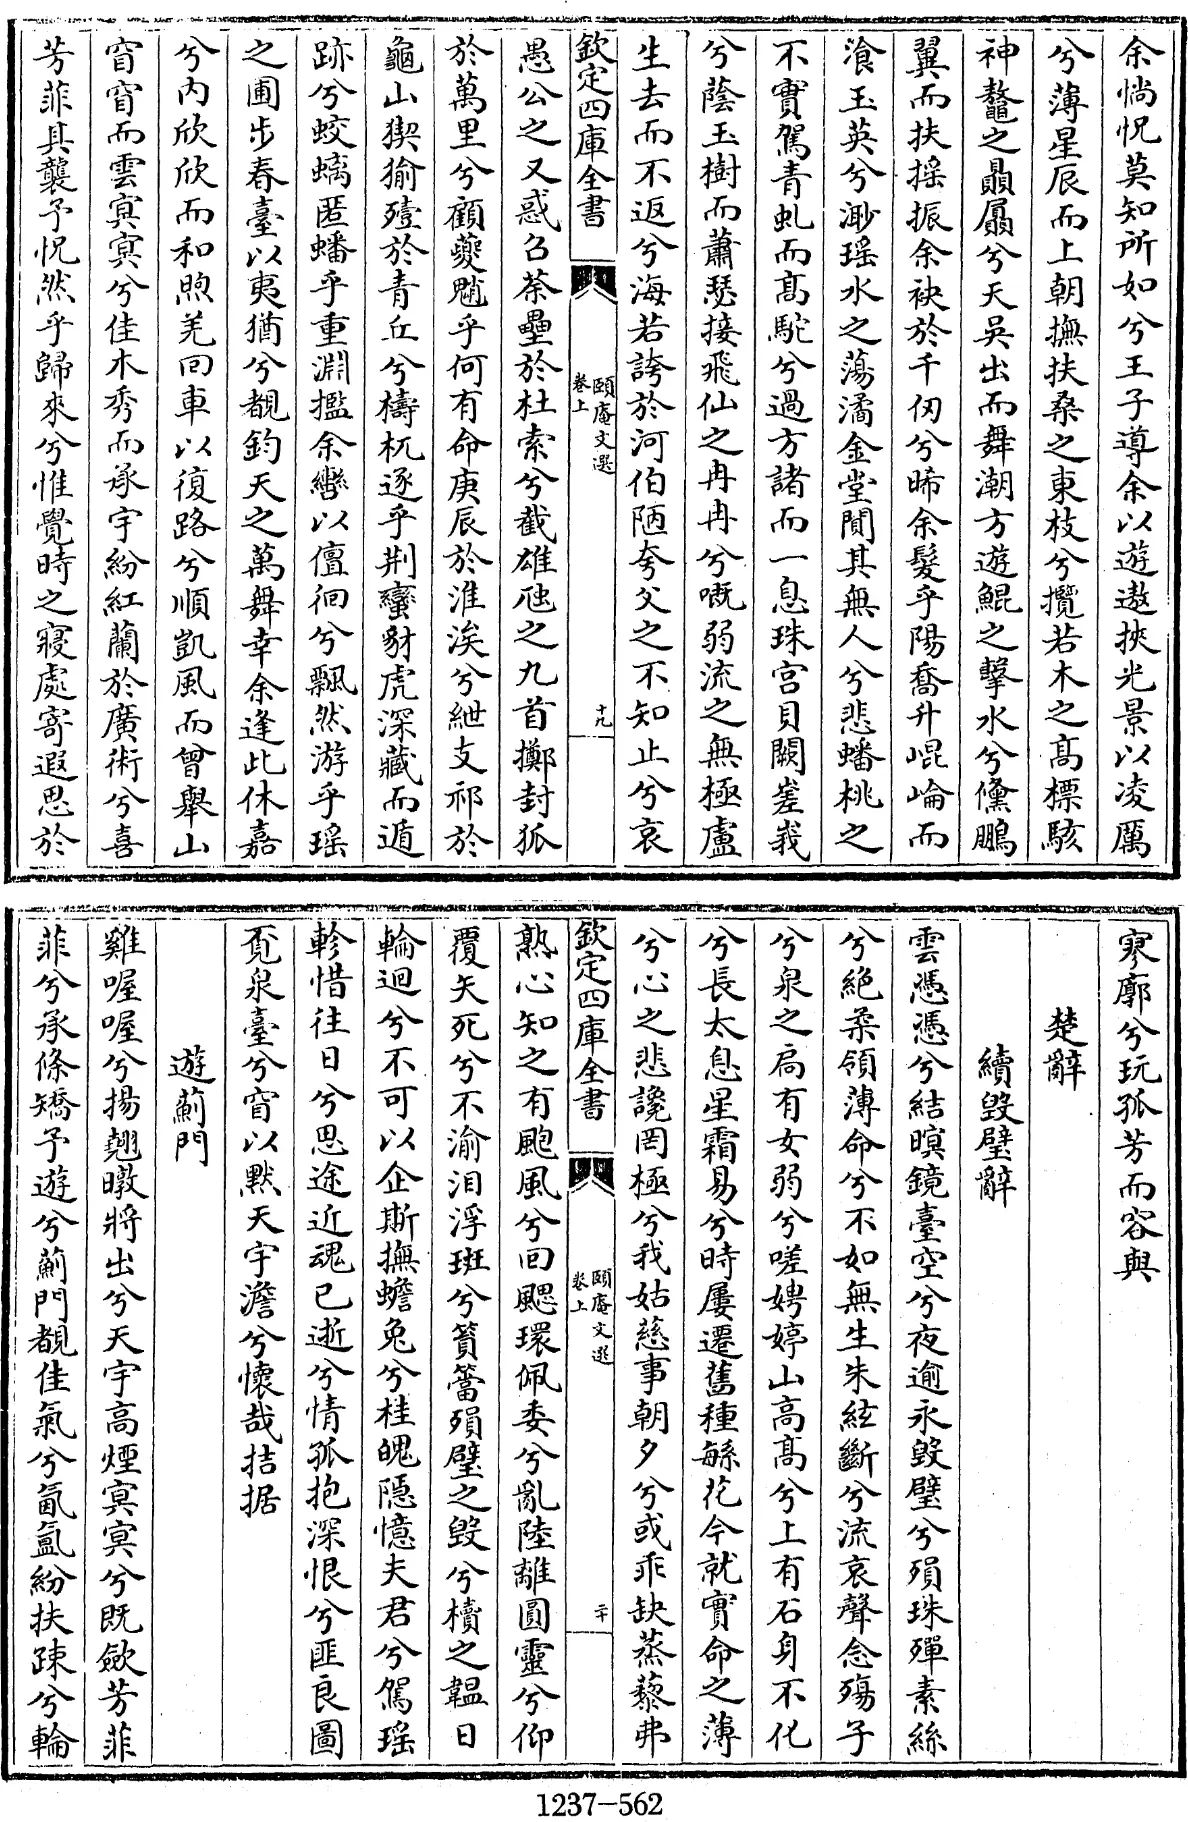 余惝怳莫知所如兮王子導余以遊遨挾光景以凌厲
兮薄星辰而上朝撫扶桑之東枝兮攬若木之髙標駭
神鼇之贔屭兮天吳出而舞潮方遊鯤之擊水兮儵鵬
翼而扶搖振余袂於千仞兮晞余髮乎陽喬升崐崙而
飡玉英兮渺瑶水之蕩潏金堂閴其無人兮悲蟠桃之
不實駕青虬而髙駝兮過方諸而一息珠宮貝闕嵳峩
兮蔭玉樹而蕭瑟接飛仙之冉冉兮嘅弱流之無極盧
生去而不返兮海若誇於河伯陋夸父之不知止兮哀
欽定四庫全書
頤庵文選
卷上
十九
愚公之又惑召荼壘於杜索兮截雄虺之九首擲封狐
於萬里兮顧夔魖乎何有命庚辰於淮涘兮紲支祁於
龜山猰㺄殪於青丘兮檮杌逐乎荆蠻豺虎深藏而遁
跡兮蛟螭匿蟠乎重淵擥余轡以儃徊兮飄然游乎瑶
之圃步春臺以夷猶兮覩鈞天之萬舞幸余逢此休嘉
兮内欣欣而和煦羌回車以復路兮順凱風而曾舉山
窅窅而雲㝠㝠兮佳木秀而承宇紛紅蘭於廣術兮喜
芳菲其襲予怳然乎歸來兮惟覺時之寢處寄遐思於
寥廓兮玩孤芳而容與
楚辭
續毀璧辭
雲憑憑兮結暝鏡臺空兮夜逾永毀璧兮殞珠殫素絲
兮絶柔領薄命兮不如無生朱絃斷兮流哀聲念殤子
兮泉之扃有女弱兮嗟娉婷山高髙兮上有石身不化
兮長太息星霜易兮時屢遷舊種蘇花今就實命之薄
兮心之悲讒罔極兮我姑慈事朝夕兮或乖缺蒸藜弗
欽定四庫全書
頤庵文選
卷上
二十
熟心知之有颮風兮回颸環佩委兮亂陸離圓靈兮仰
覆矢死兮不渝泪浮斑兮篔簹殞璧之毀兮櫝之韞日
輪迴兮不可以企斯撫蟾兔兮桂魄隱憶夫君兮駕瑶
軫惜往日兮思途近魂已逝兮情孤抱深恨兮匪良圖
覔泉臺兮窅以默天宇澹兮懷哉拮据
遊薊門
雞喔喔兮揚翹暾將出兮天宇高煙㝠㝠兮既歛芳菲
菲兮承條矯予遊兮薊門覩佳氣兮氤氲紛扶踈兮輪
1237-562